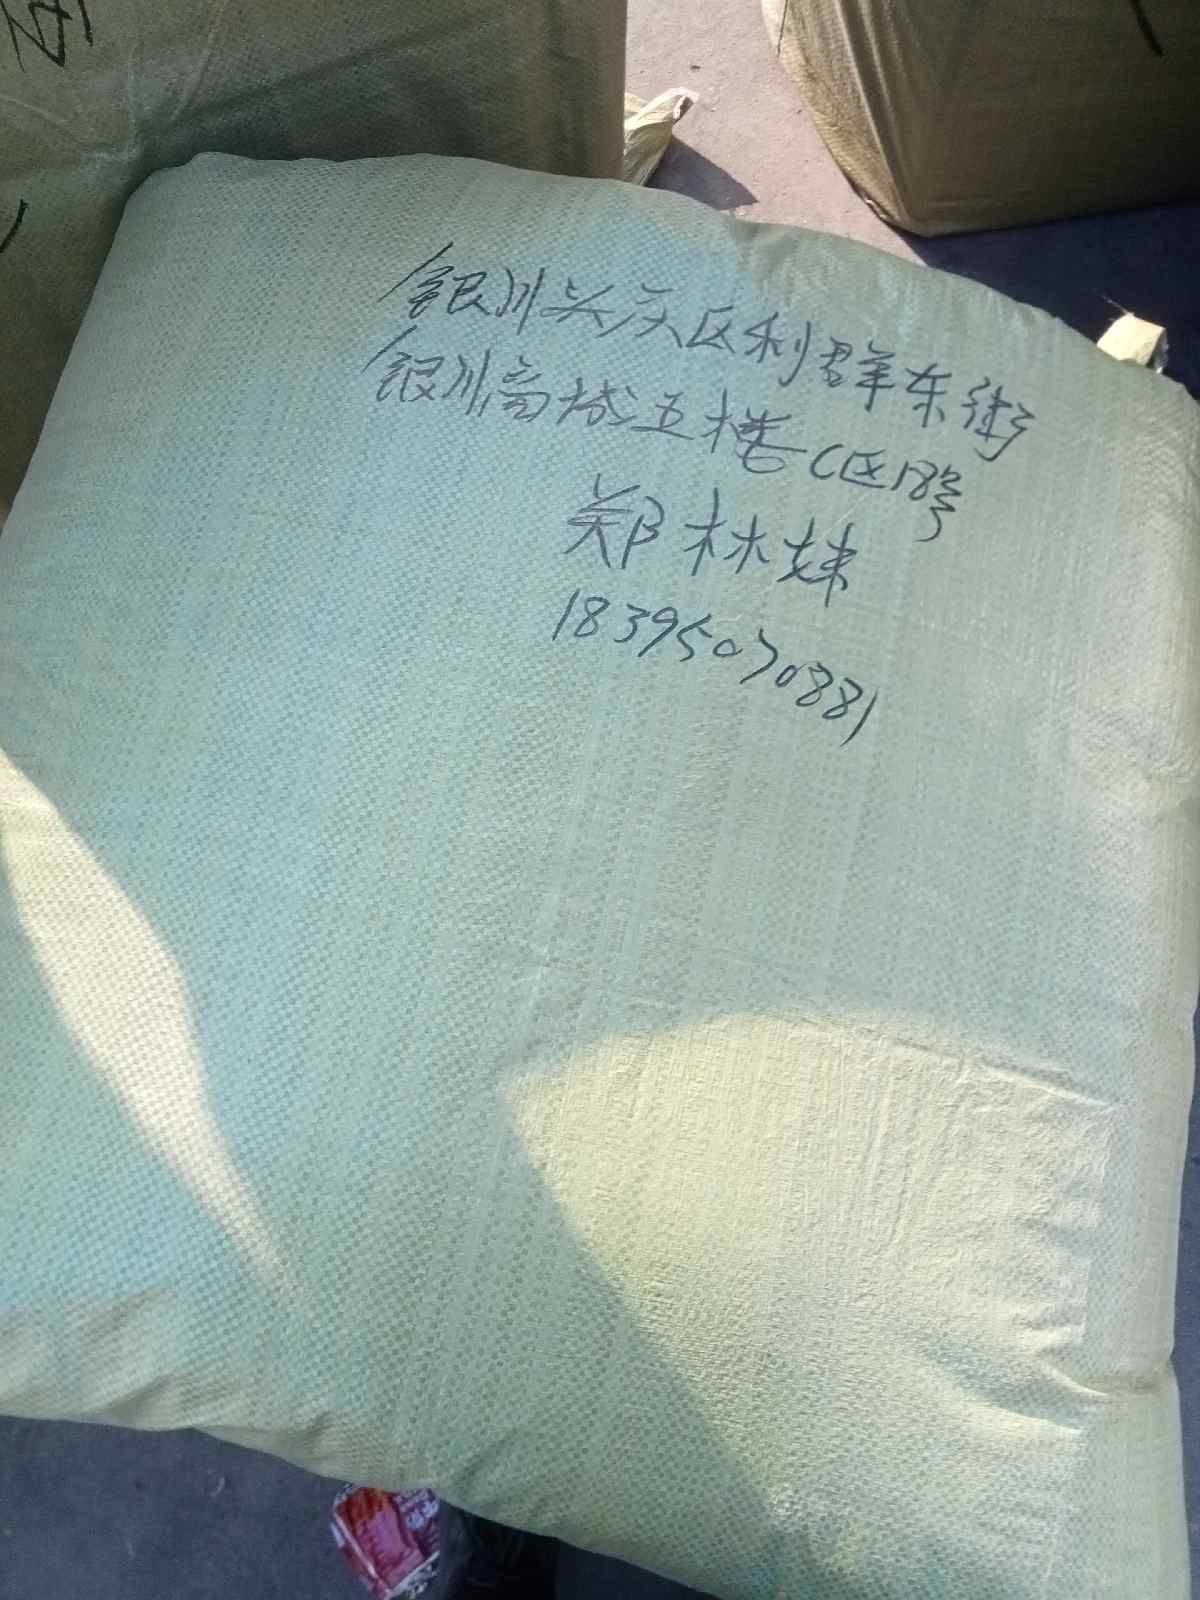 银川兴庆区利群东街
银川商城五楼C区18号
郑林妹
18395070881